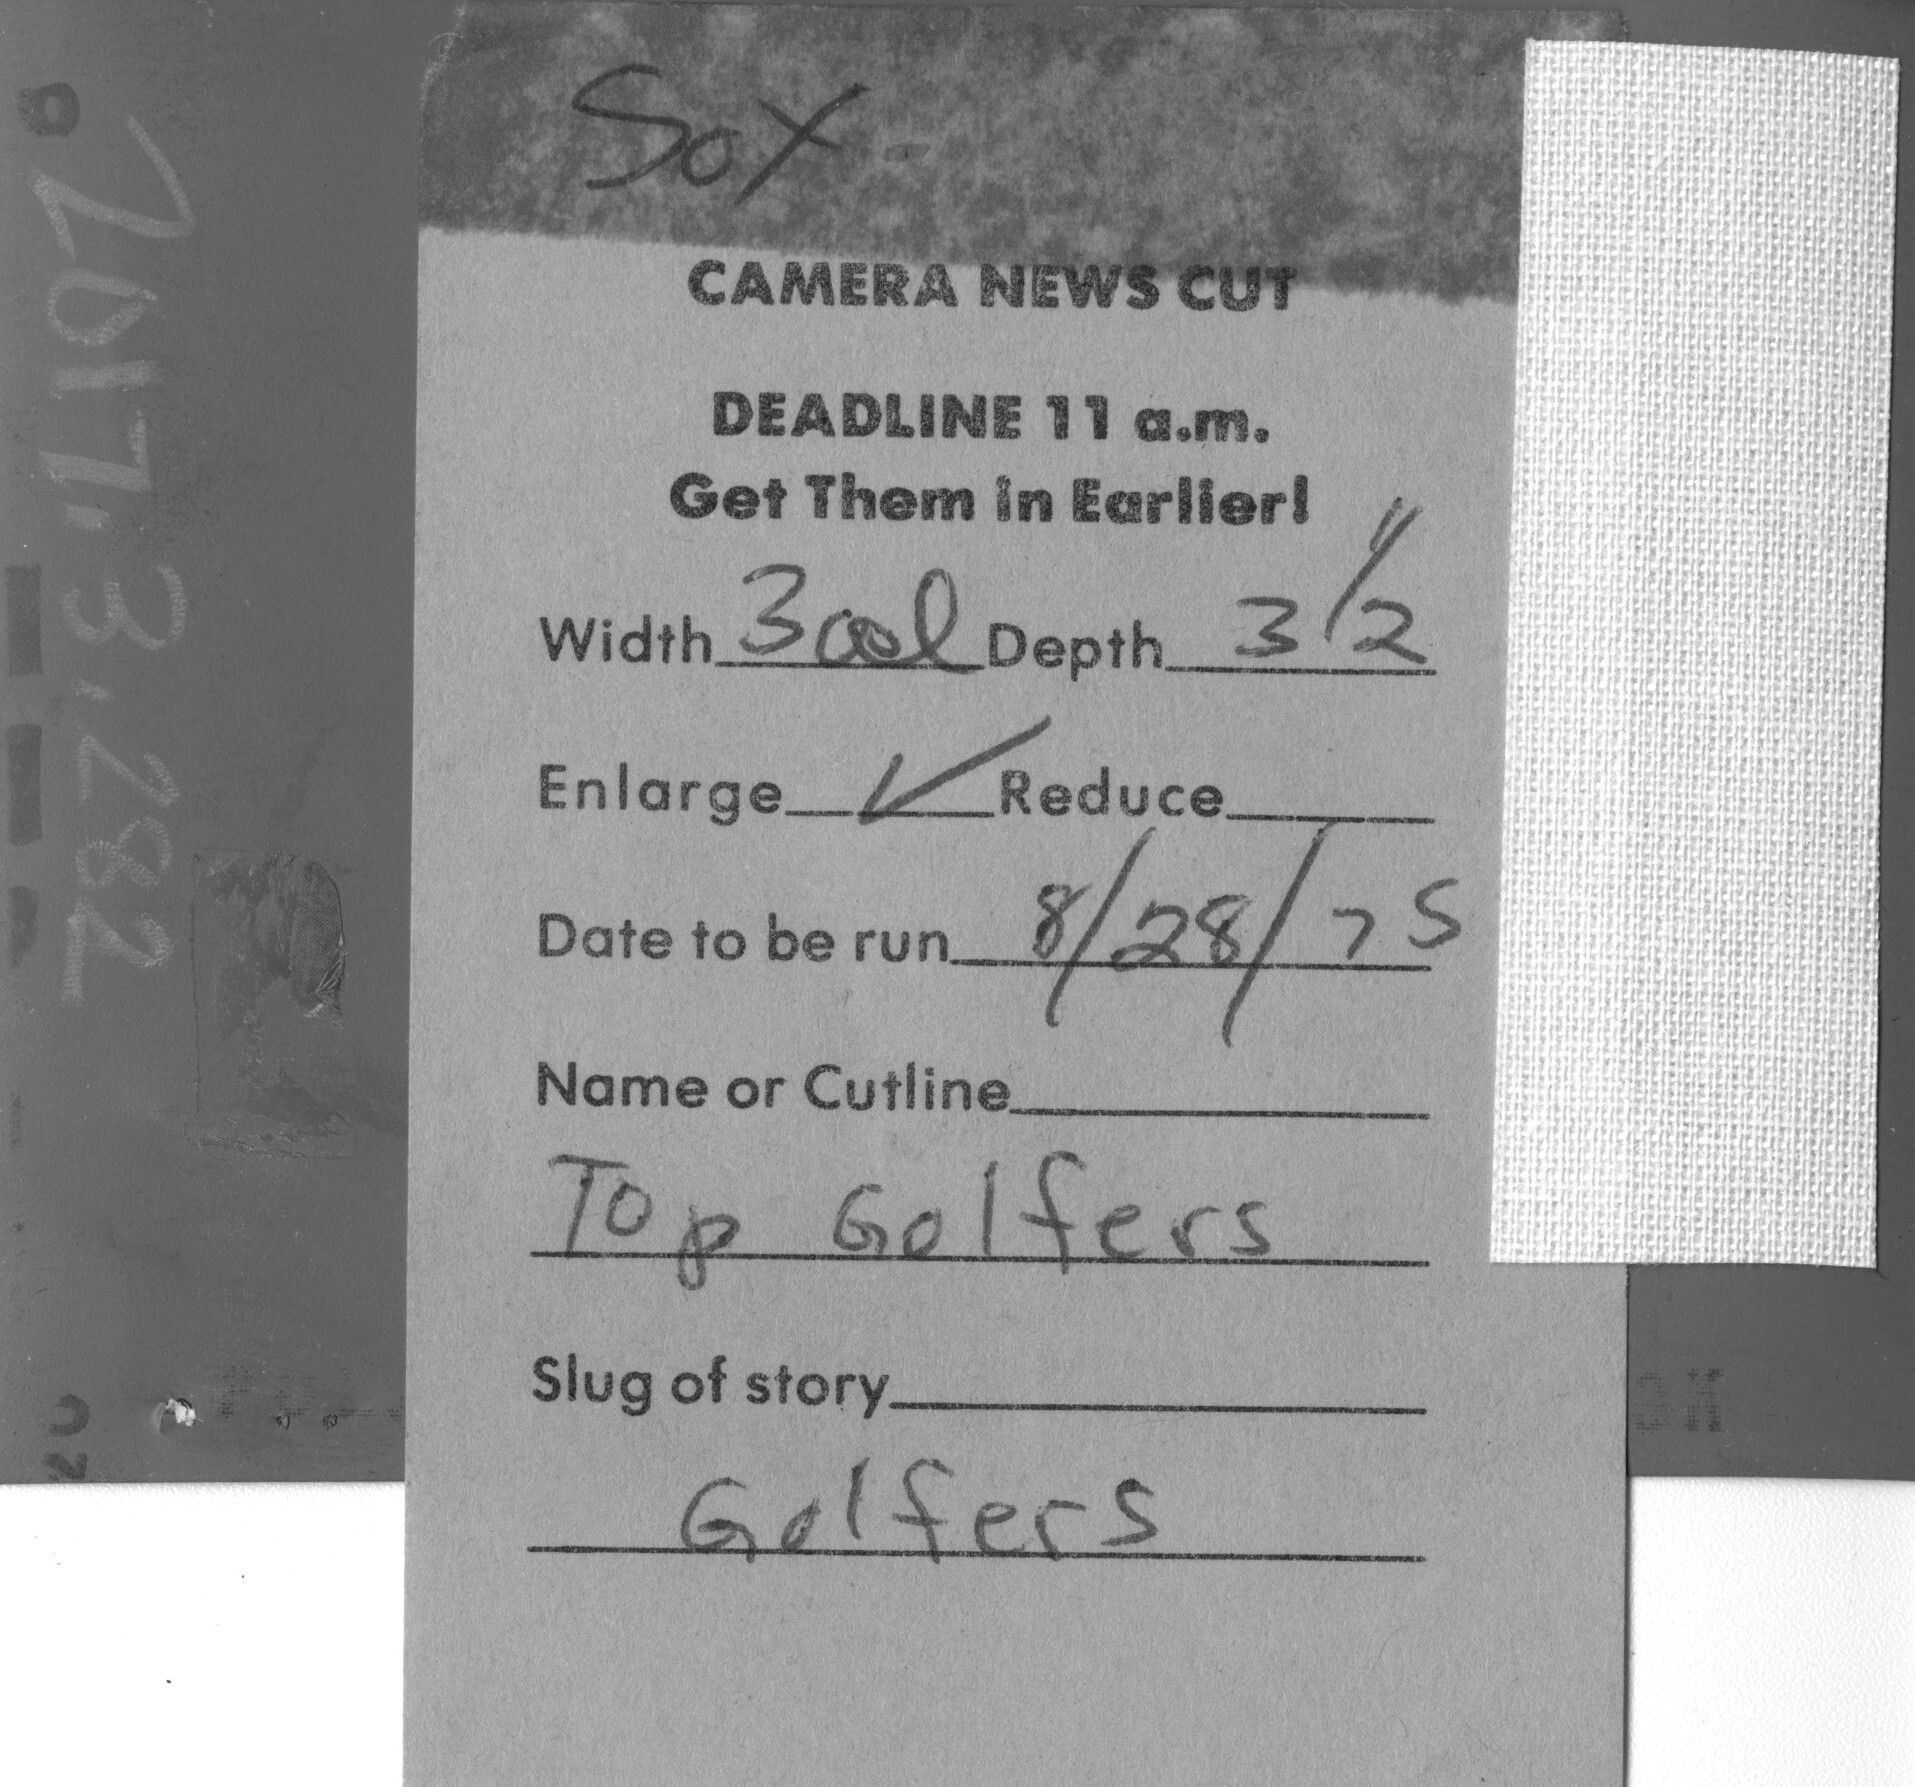 Sox -
CAMERA NEWS CUT
DEADLINE 11 a.m.
Get Them in Earlier!
Width 3 col Depth 3 1/2"
Enlarge ✓ Reduce
Date to be run 8/28/75
Name or Cutline
Top Golfers
Slug of story
Golfers
2017.3.282